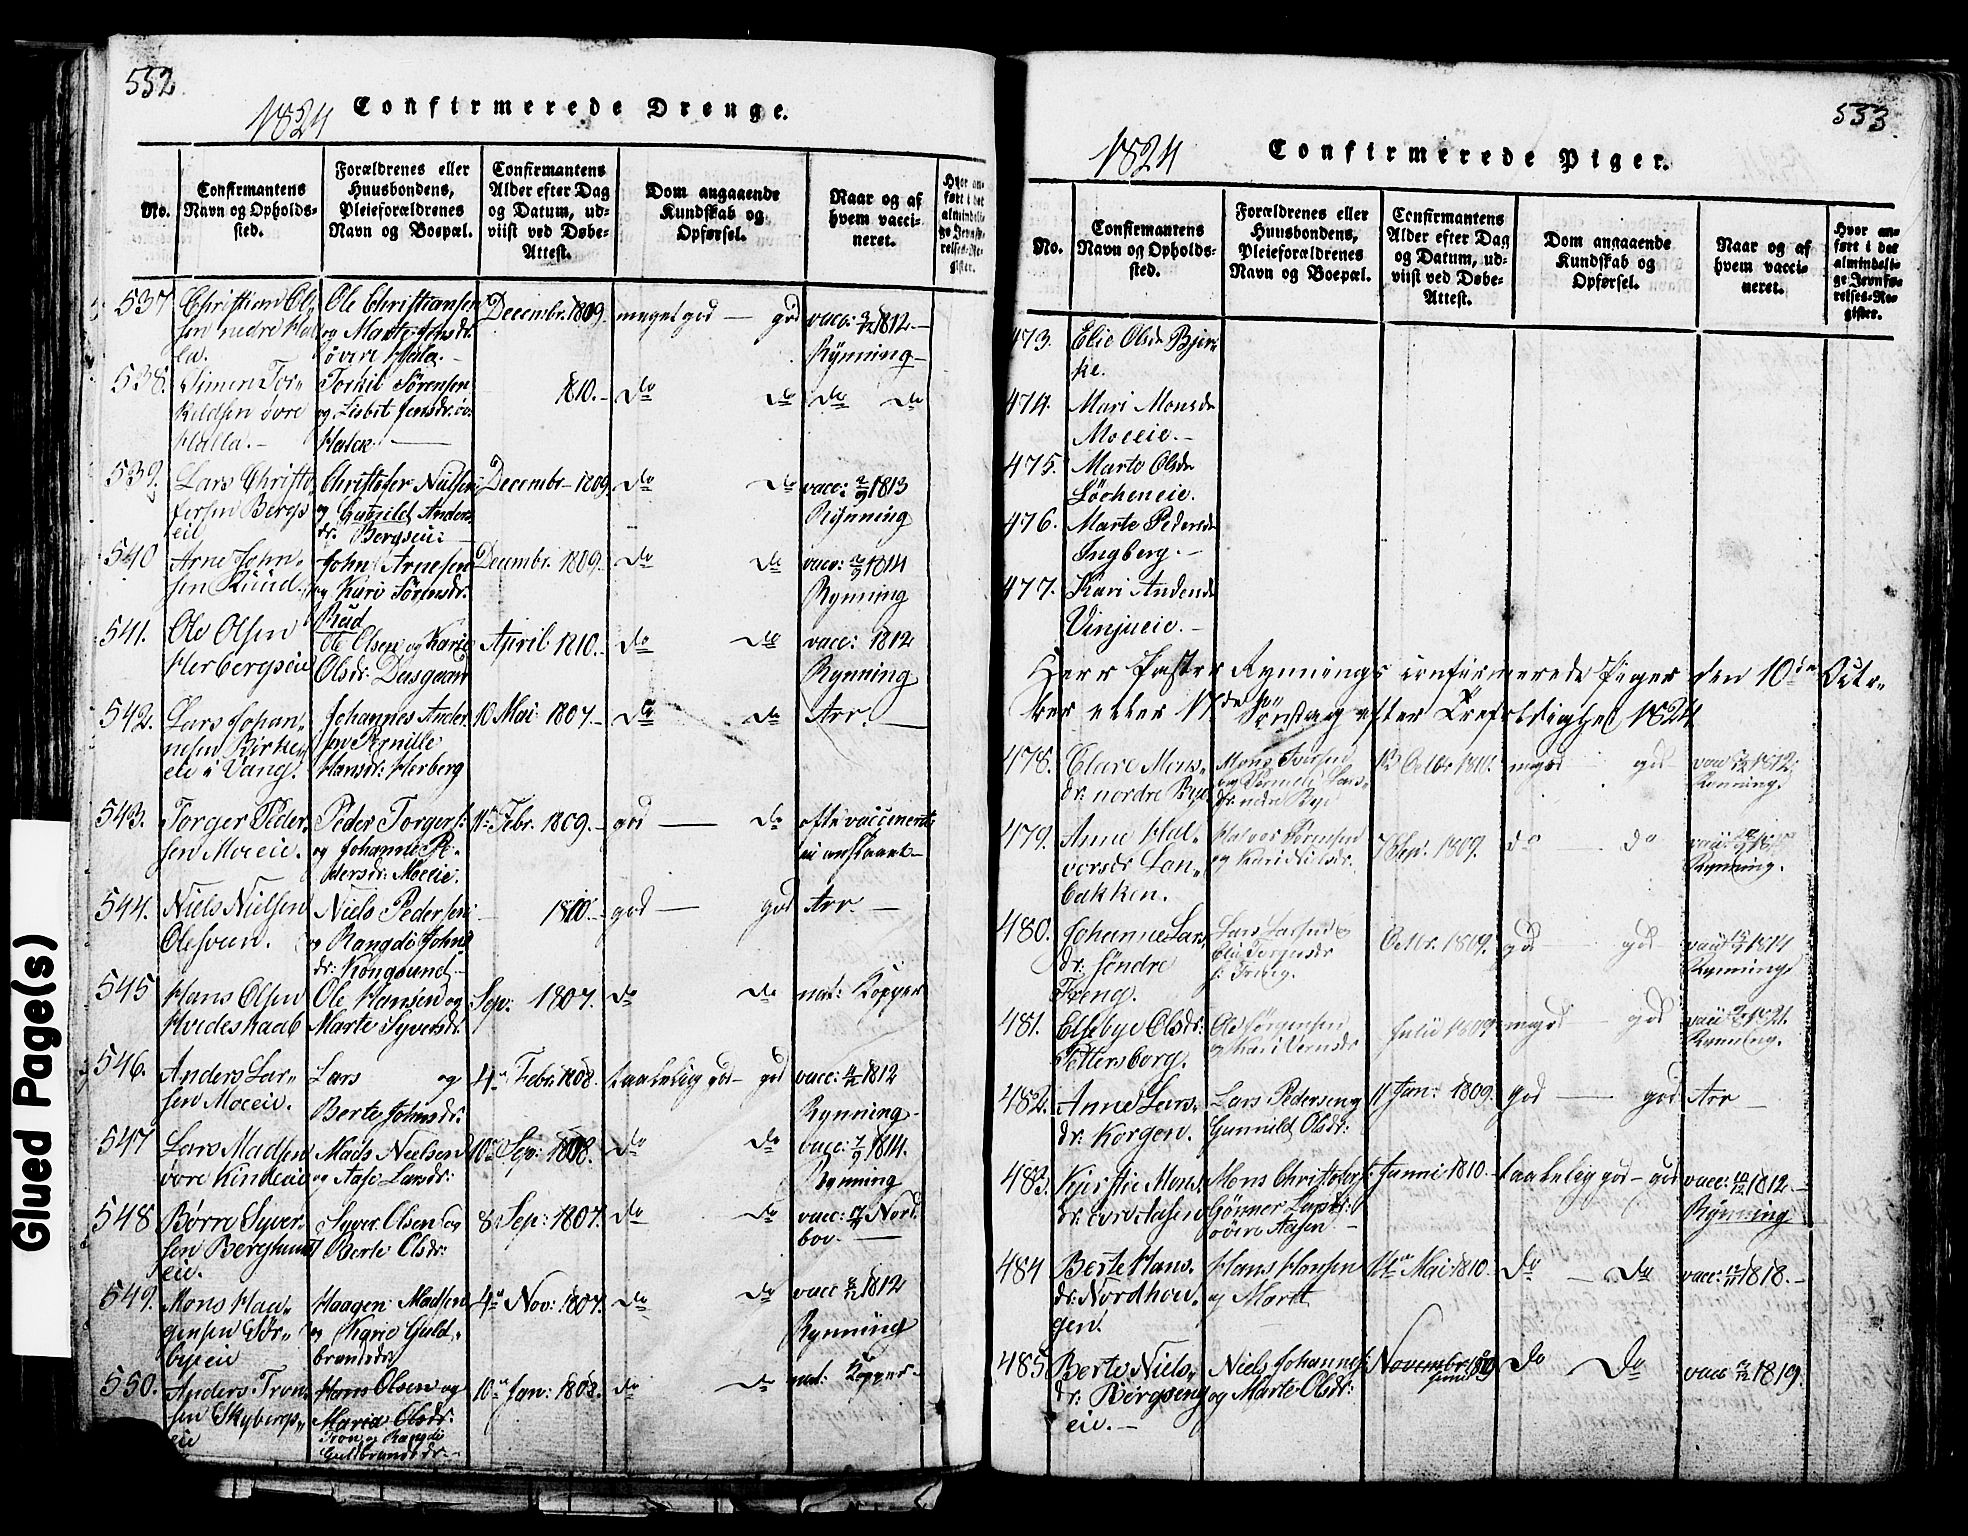 532
1824 Confirmerede Drenge.
No.
Confirmantens
Navn og Opholds-
sted.
Forældrenes eller
Huusbondens,
Pleieforældrenes
Navn og Boepæl.
Confirmantens
Alder efter Dag
og Datum, ud-
viist ved Døbe-
Attest.
Dom angaaende
Kundskab og
Opførsel.
Naar og af
hvem vacci-
neret.
Hvor an-
ført i det
almindeli-
ge Jevnfø-
relses-Re-
gister.
537
Christian Ol-
sen nedre Hal
la.
Ole Christiansen
og Marte Jensdr.
øvere Hala.
Decembr. 1809.
meget god — god
vacc: 1812.
Rynning
538.
Simen Tor-
kildsen øvre
Halla.
Torkil Sørensen
og Lisbet Jensdr. øv.
Halla
1810.
do do
do do
539.
Lars Christo
fersen Bergs
eie
Christofer Nielsen
og Gunild Anders
dr. Bergseie
Decembr 1809.
do do
vacc: 1813
Rynning
540
Arne John-
sen Ruud.
John Arnesen
og Kari Sørensdr.
Rud
Decembr. 1809.
do do
vacc: 1814
Rynning
541.
Ole Olsen
Herbergseie
Ole Olsen og Kari
Olsdr.
April 1810.
do do
vacc: 1812
Rynning
542.
Lars Johan-
nesen Birke-
eie i Vang.
Johannes Ander
sen Pernille
Hansdr: Herberg
10 Mai 1807.
do do
Arr.
543.
Torger Peder-
sen Moeeie.
Peder Torgers:
og Johanne Pe-
dersdr: Moeeie.
11te Febr. 1809.
god — do
ofte vaccineret
544.
Niels Nielsen
Olesveen.
Niels Pedersen
og Rangdi Johns
dr: Kongsund
1810.
god — god
Arr.
545
Hans Olsen
Hvideskaab
Ole Hansen og
Marte Syversdr.
Sep: 1807.
do do
nat: Kopper
546.
Anders Lar-
sen Moeeie.
Lars og
Berte Johnsdr:
4de Febr. 1808.
taalelig god — god
vacc: 1812
Rynning
547
Lars Madsen
øvre Kindeeie
Mads Nielsen
og Aase Larsdr:
10de Sep: 1808.
do do
vacc: 1814.
Rynning
548
Børre Syver-
sen Berglund
eie.
Syver Olsen og
Berte Olsdr:
8 Sep: 1807.
do do
vacc: Nord
bov.
549.
Mons Haa-
gensen Sør-
byeeie
Haagen Madsen
og Sigrie Guld-
brandsdr
4de Nov: 1807.
do do
vacc 1812
Rynning
550.
Anders Tron
sen Skybergs-
eie
Hans Olsen og
Maria Olsdr:
Tron og Rangdi
Guldbrandsdr.
10de Jan: 1808.
do do
nat: Kopper
533.
1824 Confirmerede Piger.
No.
Confirmantens
Navn og Opholds-
sted.
Forældrenes eller
Huusbondens,
Pleieforældrenes
Navn og Boepæl.
Confirmantens
Alder efter Dag
og Datum, ud-
viist ved Døbe-
Attest.
Dom angaaende
Kundskab og
Opførsel.
Naar og af
hvem vacci-
neret.
Hvor an-
ført i det
almindeli-
ge Jevnfø-
relses-Re-
gister.
473.
Elie Olsdr Bjer-
ke.
474.
Mari Monsdr
Moeeie.
475.
Marte Olsdr
Løcheneie.
476.
Marte Pedersdr
Ingberg.
477.
Kari Andersdr
Vinjueie.
Herr Pastor Rynnings confirmerede Piger den 10de Octo-
ber eller 17de Søndag efter Trefoldighed 1824
478.
Clare Mons-
dr. nordre Bye
Mons Iversen
og Pernele Lars-
dr. nedre Bye
12 Octbr 1811.
mgod god
vacc 1812.
Rynning.
479.
Anne Hal-
vorsdr Lan-
bakken.
Halvor Sørensen
og Kari Nielsdr.
7 Sep. 1809.
do do
Rynning.
480.
Johanne Lars
dr. søndre
Freng.
Lars Larsen og
Elie Torgersdr
s. Freng.
Octbr. 1809.
god god
vacc 1814
Rynning
481.
Ellebye Olsdr:
Pettersborg.
Ole Jørgensen
og Kari
Julii 1809
mgod god
vacc 1821.
Rynning.
482.
Anne Lars-
dr: Korgen.
Lars Pedersen og
Gunnild Olsdr:
11 Jan: 1809.
god — god
Arr
483.
Kjerstie Mons-
dr. øvre Aasen
Mons Christofers:
Gönner Larsdr:
øvre Aasen
Junni 1810.
taalelig god — god
vacc: 1812.
Rynning
484
Berte Hans-
dr: Nordhou-
gen.
Hans Hansen
og Marit
14de Mai 1810.
do — do
vacc: 1818.
485.
Berte Niels-
dr: Bergseng
eie.
Niels Johannes:
og Marte Olsdr:
Novembr 1809
do do
vacc 1819.
Glued Page(s)